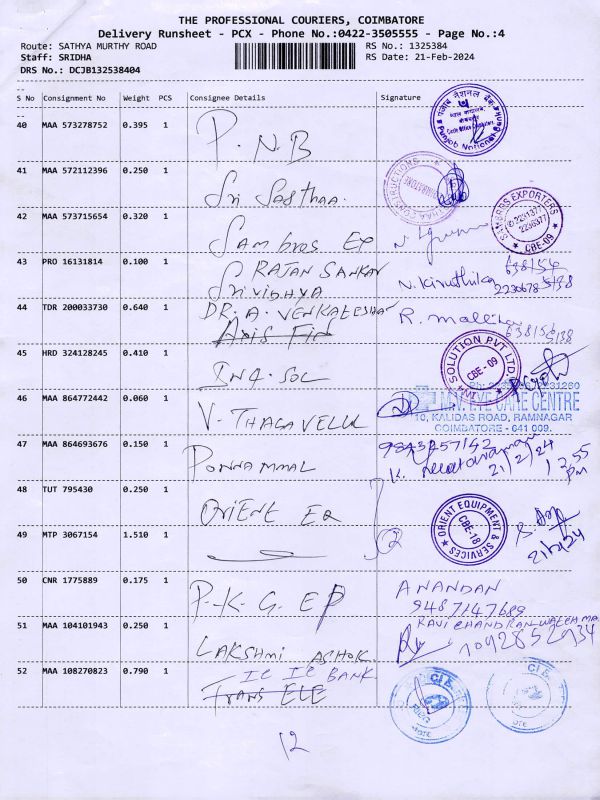 THE PROFESSIONAL COURIERS, COIMBATORE
Delivery Runsheet - PCX - Phone No.:0422-3505555 - Page No.:4
Route: SATHYA MURTHY ROAD RS No.: 1325384
Staff: SRIDHA RS Date: 21-Feb-2024
DRS No.: DCJB132538404
S No Consignment No Weight PCS Consignee Details Signature
40 MAA 573278752 0.395 1 P.N.B
41 MAA 572112396 0.250 1 Sri Sasthaa.
42 MAA 573715654 0.320 1 Sambros Ex
SAMBROS EXPORTERS
CBE-09
43 PRO 16131814 0.100 1 RAJAN SANKAR
SriVidhya N. Kiruthika
44 TDR 200033730 0.640 1 DR. A. VENKATESHAN
Axis Fin R.
45 HRD 324128245 0.410 1 INQ. SOL
SOLUTION PVT LTD.
CBE - 09
46 MAA 864772442 0.060 1 V. THAGAVELUL
EYE CARE CENTRE
10, KALIDAS ROAD, RAMNAGAR
COIMBATORE - 641 009.
47 MAA 864693676 0.150 1 PONNAMMAL
K. 21/2/24
48 TUT 795430 0.250 1 ORIENT EQ
ORIENT EQUIPMENT & SERVICES
CBE-18
49 MTP 3067154 1.510 1
21/2/24
50 CNR 1775889 0.175 1 P.K.G. EP ANANDAN
9487147689
51 MAA 104101943 0.250 1 LAKSHMI ASHOK
52 MAA 108270823 0.790 1 IC IC BANK
Trans ELE
12